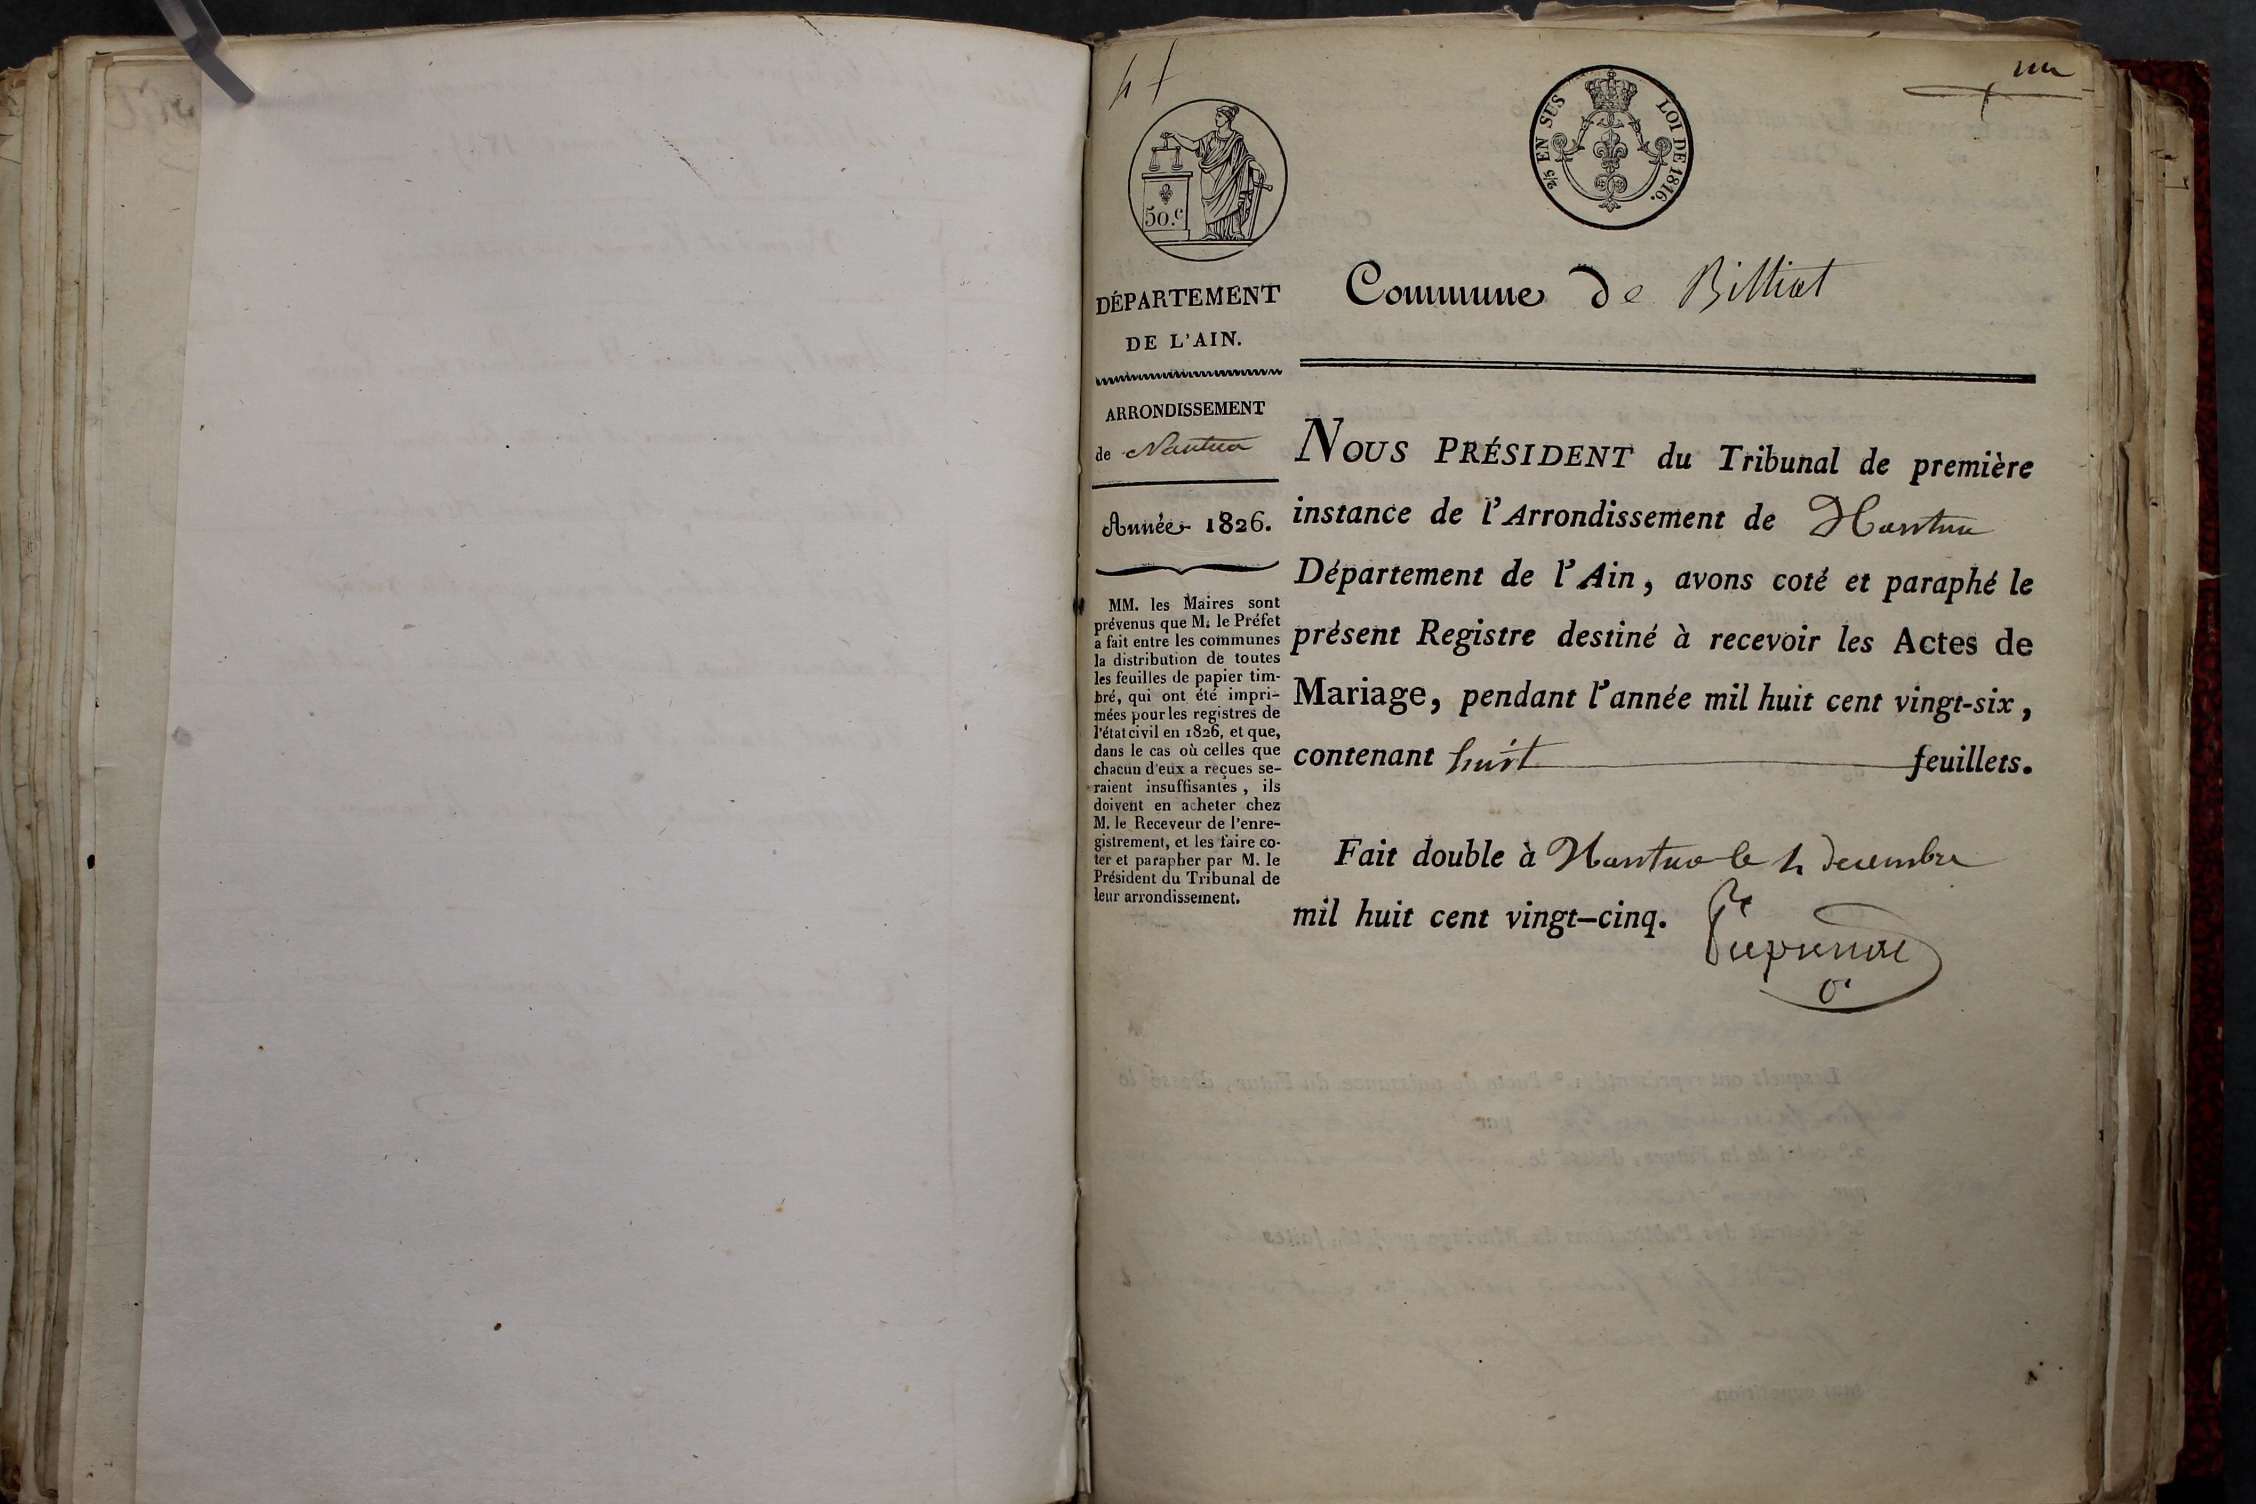 50.c
2/5 EN SUS
LOI DE 1816.
DÉPARTEMENT
DE L'AIN.
ARRONDISSEMENT
de Nantua
Année 1826.
MM. les Maires sont
prévenus que M. le Préfet
a fait entre les communes
la distribution de toutes
les feuilles de papier tim-
bré, qui ont été impri-
mées pour les registres de
l'état civil en 1826, et que,
dans le cas où celles que
chacun d'eux a reçues se-
raient insuffisantes, ils
doivent en acheter chez
M. le Receveur de l'enre-
gistrement, et les faire co-
ter et parapher par M. le
Président du Tribunal de
leur arrondissement.
Commune de Billiat
NOUS PRÉSIDENT du Tribunal de première
instance de l'Arrondissement de Nantua
Département de l'Ain, avons coté et paraphé le
présent Registre destiné à recevoir les Actes de
Mariage, pendant l'année mil huit cent vingt-six,
contenant huit feuillets.
Fait double à Nantua le 4 decembre
mil huit cent vingt-cinq.